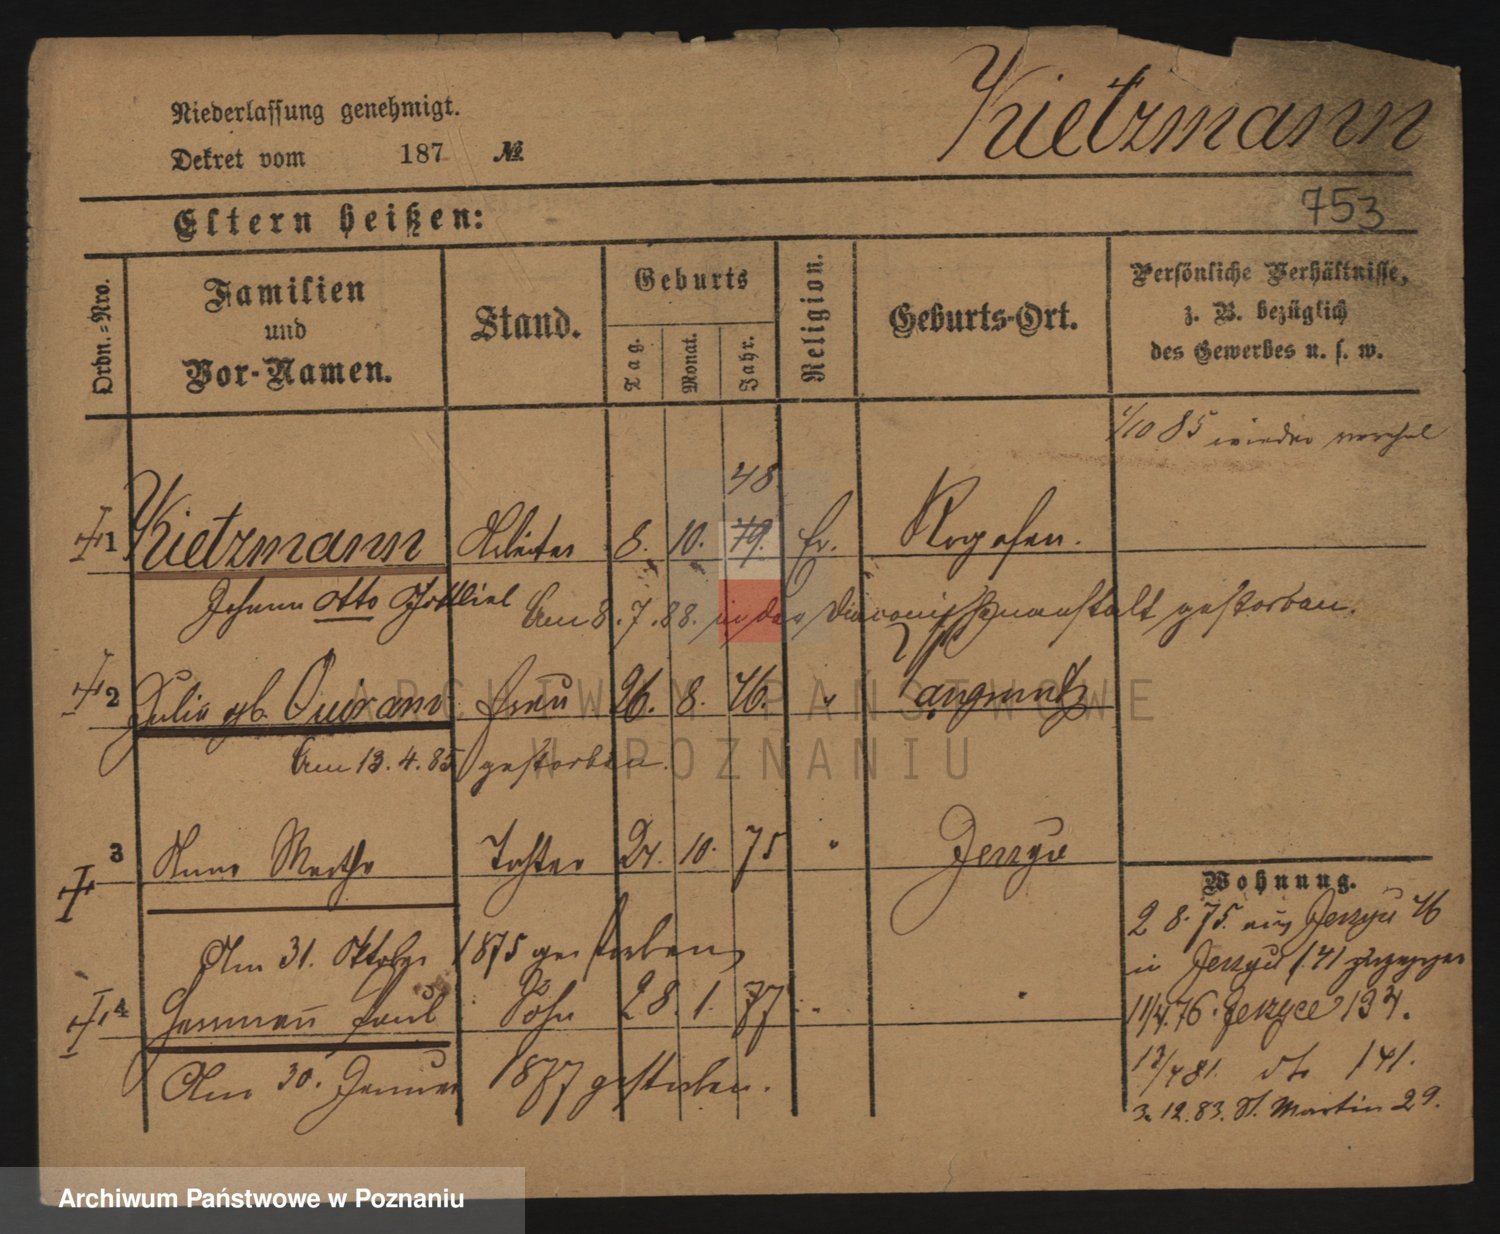 Niederlassung genehmigt.
Dekret vom 187 №
Kietzmann
753
Eltern heißen:
Ordn.=Nro.
Familien und Vor-Namen.
Stand.
Geburts
Tag.
Monat.
Jahr.
Religion.
Geburts-Ort.
Persönliche Verhältnisse,
z. B. bezüglich
des Gewerbes u. s. w.
1/10 85 wieder
48
1 Kietzmann Arbeiter 8. 10. 49. Ev. Rogasen.
Johann Otto Gottlieb
Am 8.7.88. in der Diaconissenanstalt gestorben.
2 Julie gb. Frau 26. 8. 46. "
Am 13.4.85 gestorben.
3 Anna Martha Tochter 24. 10. 75 " Jerzyce
Am 31. Oktober 1875 gestorben
4 Hermann Paul Sohn 28. 1. 77 "
Am 30. Januar 1877 gestorben.
Wohnung.
2 8. 75. aus Jerzyce 46
in Jerzyce 141
11/4. 76. Jerzyce 134.
12/4 81. dto 141.
3. 12. 83. St. Martin 29.
ARCHIWUM PAŃSTWOWE
W POZNANIU
Archiwum Państwowe w Poznaniu